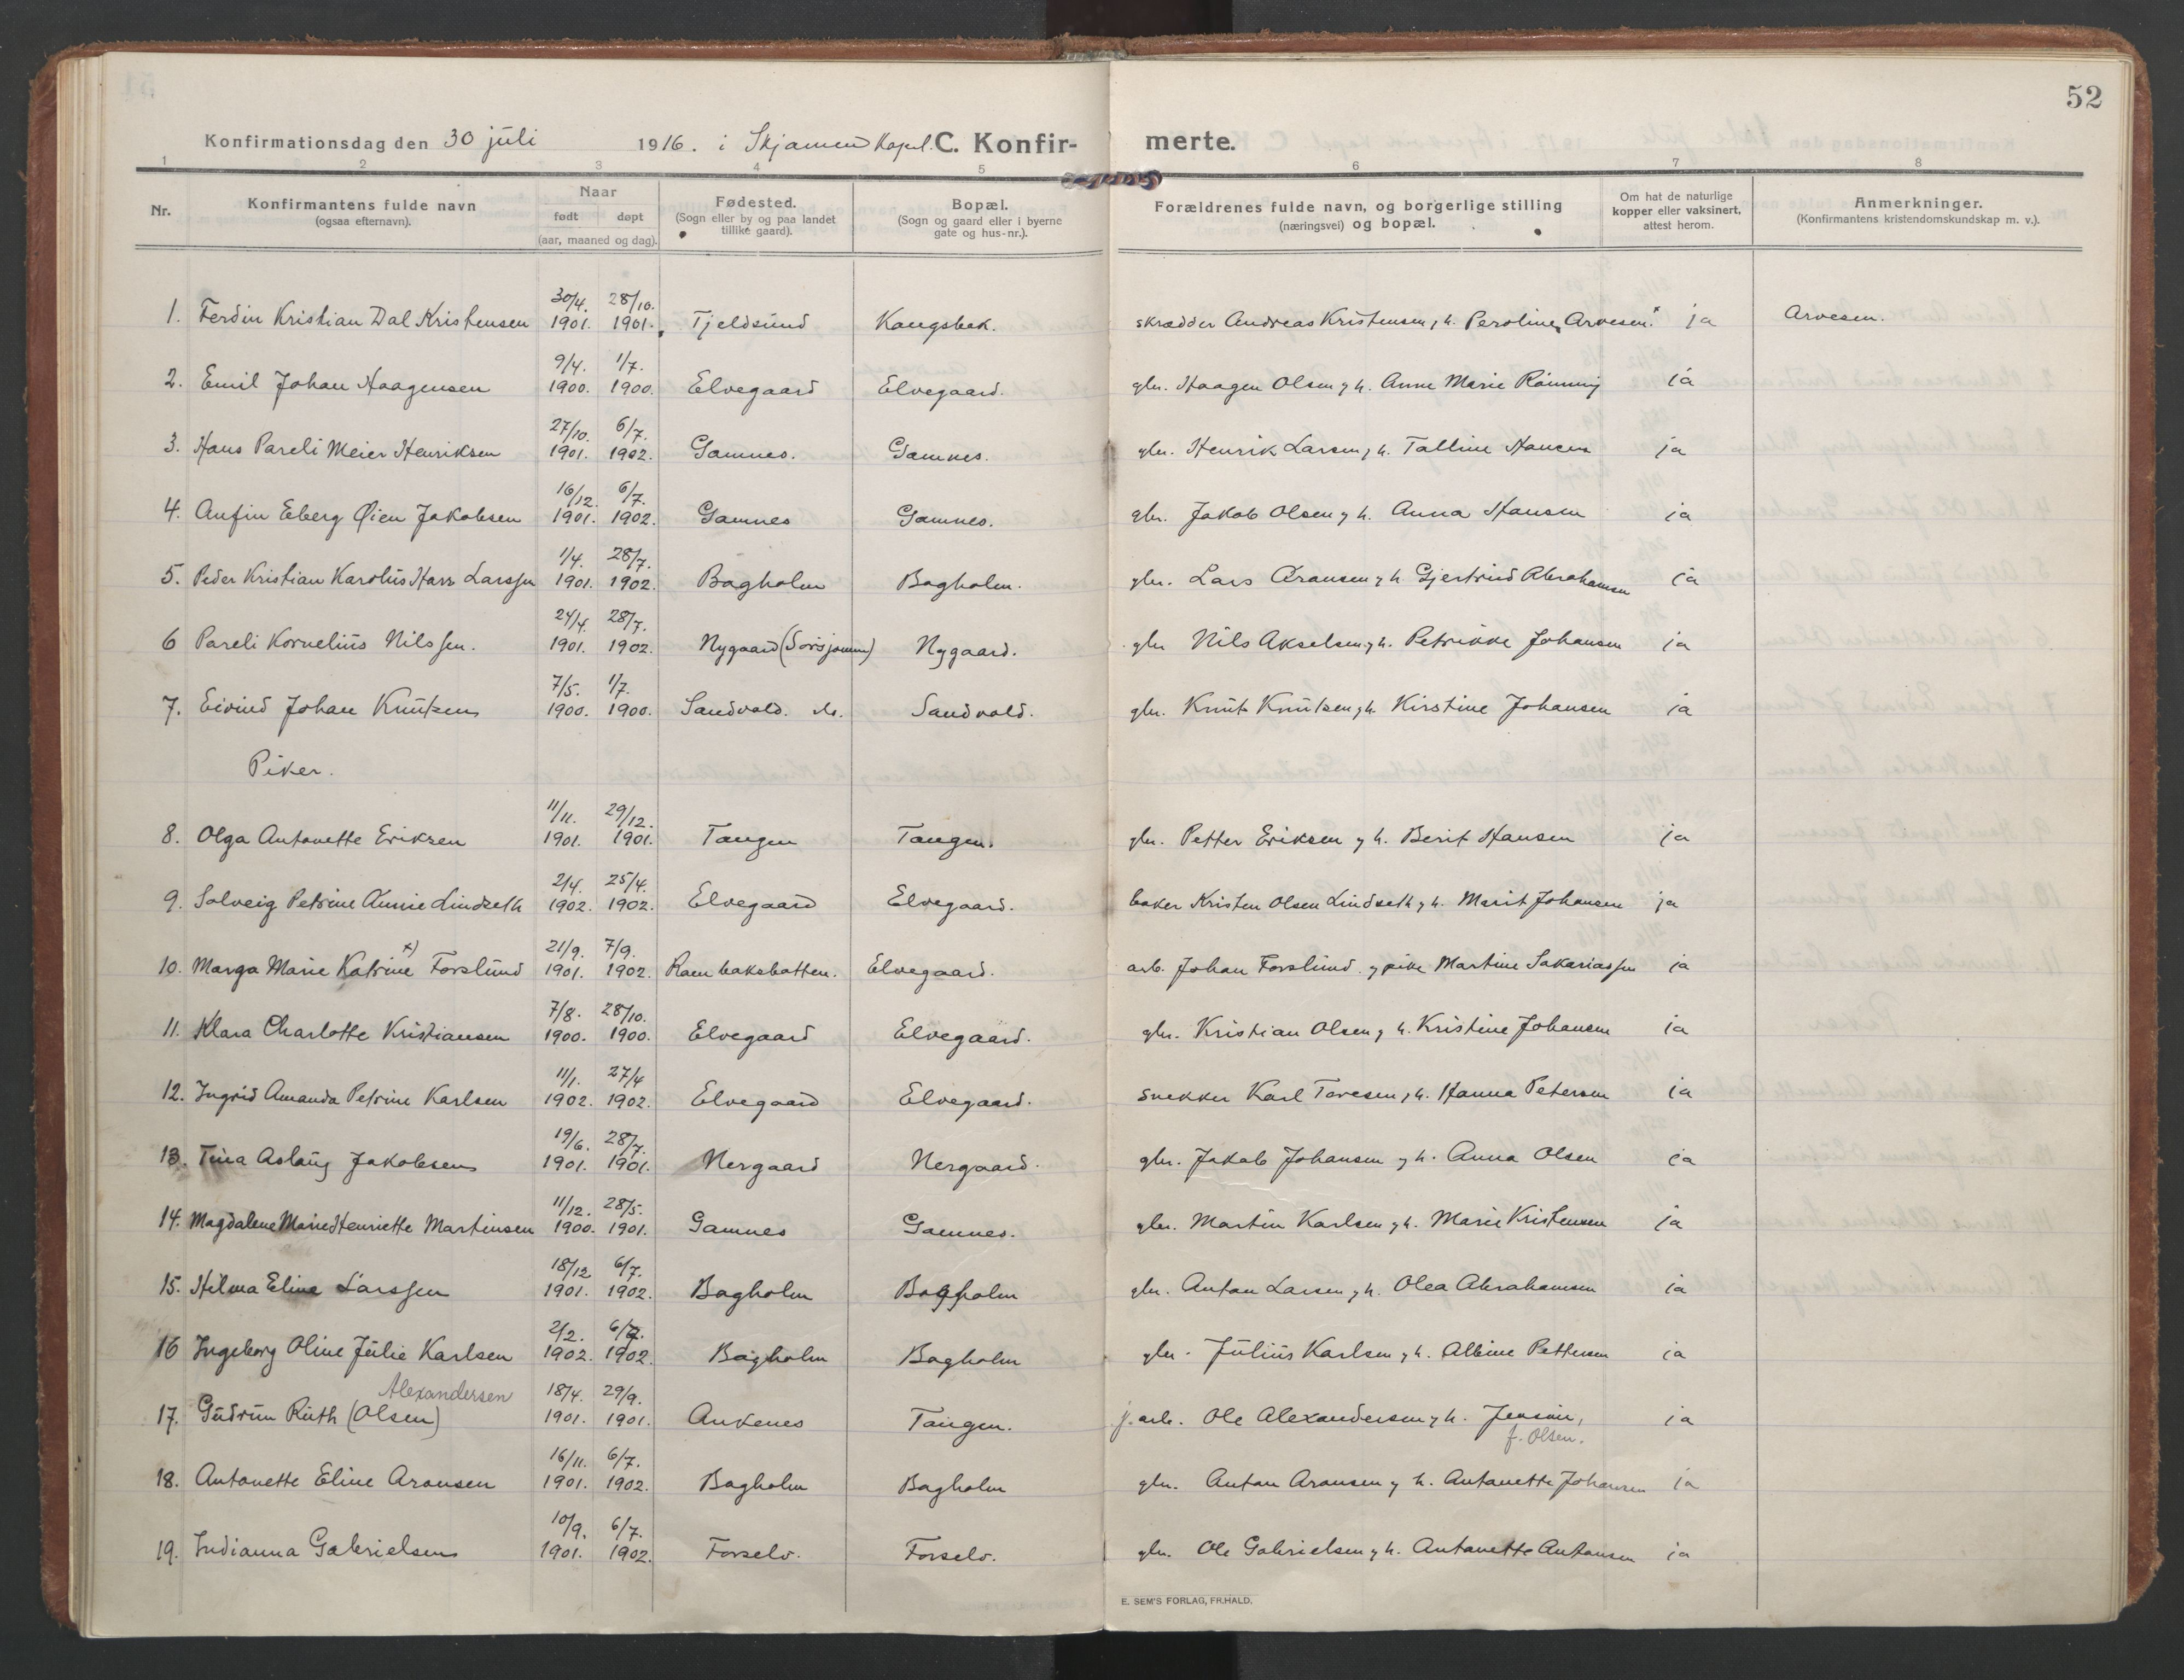 52
Konfirmationsdag den 30 juli 1916. i Skjamen Kapel. C. Konfir- merte.
1 2 3 4 5 6 7 8
Nr.
Konfirmantens fulde navn
(ogsaa efternavn).
Naar
født døpt
(aar, maaned og dag).
Fødested.
(Sogn eller by og paa landet
tillike gaard).
Bopæl.
(Sogn og gaard eller i byerne
gate og hus-nr.).
Forældrenes fulde navn, og borgerlige stilling
(næringsvei) og bopæl.
Om hat de naturlige
kopper eller vaksinert,
attest herom.
Anmerkninger.
(Konfirmantens kristendomskundskap m. v.).
30/4. 28/10.
1. Ferdin Kristian Dal Kristensen 1901. 1901. Tjeldsund Kongsbak. skrædder Andreas Kristensen, h. Peroline Arvesen. ja Arvesen.
9/4. 1/7.
2. Emil Johan Haagensen 1900. 1900. Elvegaard Elvegaard. gbr. Haagen Olsen, h. Anne Marie Rønning ja
27/10. 6/7.
3. Hans Pareli Meier Henriksen 1901. 1902. Gamnes. Gamnes. gbr. Henrik Larsen, h. Talline Hansen ja
16/12. 6/7.
4. Anfin Eberg Øien Jakobsen 1901. 1902. Gamnes Gamnes. gbr. Jakob Olsen, h. Anna Hansen ja
1/4. 28/7.
5. Peder Kristian Karolius Harr Larssen 1901. 1902. Bagholm Bagholm. gbr. Lars Aronsen, h Gjertrud Abrahamsen ja
24/4. 28/7.
6 Pareli Kornelius Nilssen. 1901. 1902. Nygaard (Sørsjomen) Nygaard. gbr Nils Akselsen, h. Petrikke Johansen ja
7/5. 1/7.
7. Eivind Johan Knutsen 1900. 1900. Sandvold. do. Sandvold. gbr. Knut Knutsen, h. Kirstine Johansen ja
Piker.
11/11. 29/12.
8. Olga Antonette Eriksen 1901. 1901. Tangen Tangen. gbr. Petter Eriksen, h. Berit Hansen ja
2/4. 25/4.
9. Solveig Petrine Annie Lindseth 1902. 1902. Elvegaard Elvegaard. baker Kristen Olsen Lindseth, h. Marit Johansen ja
21/9. 7/9.
10. Marga Marie Katrine x) Forslund 1901. 1902. Rombaksbotten. Elvegaard. arb. Johan Forslund, pike Martine Sakariassen ja
7/8. 28/10.
11. Klara Charlotte Kristiansen 1900. 1900. Elvegaard Elvegaard. gbr. Kristian Olsen, h. Kristine Johansen ja
11/1. 27/4
12. Ingrid Amanda Petrine Karlsen 1902. 1902. Elvegaard Elvegaard. snekker Karl Toresen, h. Hanna Petersen ja
19/6. 28/7.
13. Tina Aslaug Jakobsen 1901. 1901. Nergaard Nergaard. gbr. Jakob Johansen, h. Anna Olsen ja
11/12. 28/5.
14. Magdalene Marie Henriette Martinsen 1900. 1901. Gamnes Gamnes. gbr. Martin Karlsen, h. Marie Kristensen ja
18/12 6/7.
15. Hilma Elina Larssen 1901. 1902. Bagholm Bagholm gbr. Anton Larsen, h. Olea Abrahamsen ja
2/2. 6/7.
16 Ingeborg Oline Julie Karlsen 1902. 1902. Bagholm Bagholm gbr. Julius Karlsen, h. Albine Pettersen ja
Alexandersen 18/4. 29/9.
17. Gudrun Ruth (Olsen) 1901. 1901. Ankenes Tangen. j.arb. Ole Alexandersen, h. Jensine, ja
f. Olsen.
16/11. 6/7.
18. Antonette Eline Aronsen 1901. 1902. Bagholm Bagholm gbr. Anton Aronsen, h. Antonette Johansen ja
10/9. 6/7.
19. Indianna Gabrielsen 1901. 1902. Forselv. Forselv. gbr. Ole Gabrielsen, h. Antonette Antonsen ja
E. SEM'S FORLAG, FR.HALD.